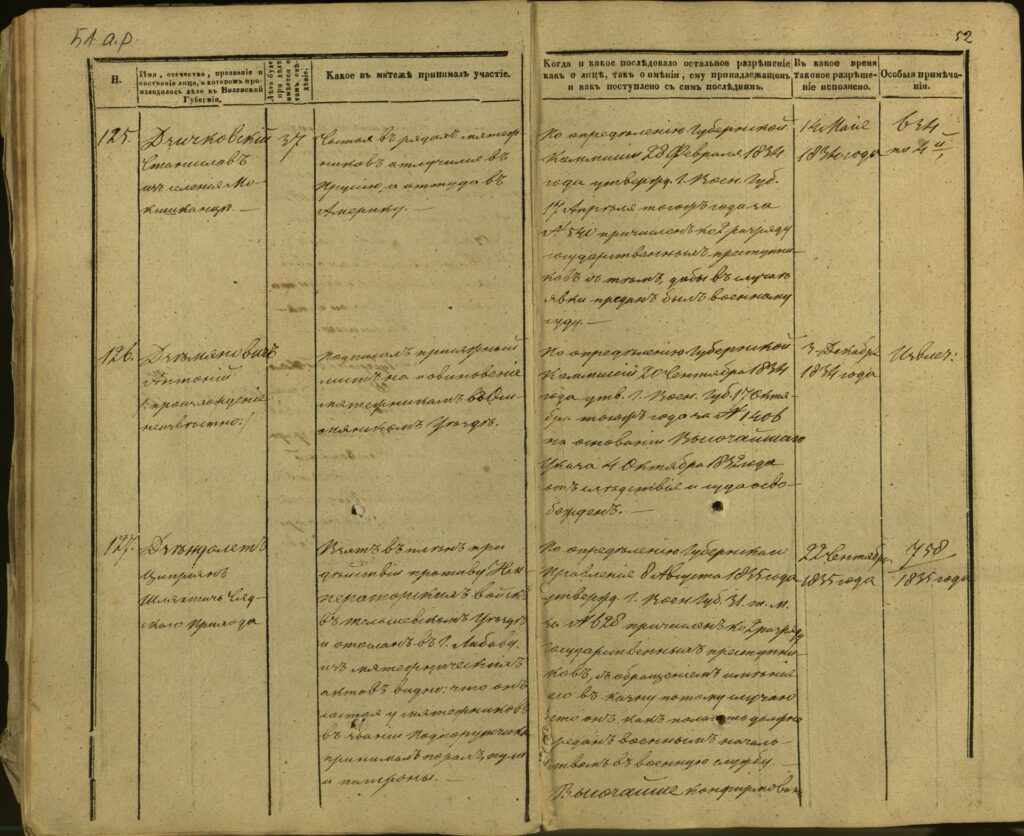 51 а.р.
52
Н.
Имя, отечество, прозваніе и
состояніе лица, о которомъ про-
изводилось дѣло въ Виленской
Губерніи.
Какое въ мятежѣ принималъ участіе.
Когда и какое послѣдовало остальное разрѣшеніе
какъ о лицѣ, такъ о имѣніи, ему принадлежащемъ
и какъ поступлено съ симъ послѣднимъ.
Въ какое время
таковое разрѣше-
ніе исполнено.
Особыя примѣча-
нія.
125.
Станиславъ
изъ селенія Мо-
37
Состоя въ рядахъ мятеж-
никовъ отлучился въ
Прусію, а оттуда въ
Америку.
По опредѣленію Губернской
Коммисіи 28 Февраля 1834
года утвержд. г. Воен. Губ.
17 Апрѣля того жъ года за
№ 540 причисленъ ко 2 разряду
государственныхъ преступни-
ковъ съ тѣмъ, дабы въ случаѣ
явки преданъ былъ военному
суду.
14 Мая
1834 года
634
по 4
126.
Антоній
происхожденіе
неизвѣстно
Подписалъ присяжный
листъ на повиновеніе
мятежникамъ въ Ош-
мянскомъ Уѣздѣ.
По опредѣленію Губернской
Коммисіи 20 Сентября 1834
года утв. г. Воен. Губ. 17 Октя-
бря того жъ года за № 1406
на основаніи Высочайшаго
Указа 4 Октября 1832 года
отъ слѣдствія и суда осво-
божденъ.
3 Декабря
1834 года
Извлеч:
127.
Циприянъ
Шляхтичъ
Прихода
Взятъ въ плѣнъ при
дѣйствіи противу Им-
ператорскихъ войскъ
въ Тельшевскомъ Уѣздѣ
и отосланъ въ г. Либаву,
изъ мятежническихъ
актовъ видно: что онъ
состоя у мятежниковъ
въ званіи Подпоручика
принималъ порохъ, пули
и патроны.
По опредѣленію Губернскаго
Правленія 8 Августа 1835 года
утвержд. г. Воен. Губ. 31. т. м.
за № 628 причисленъ ко 2 разряду
государственныхъ преступни-
ковъ, съ обращеніемъ имѣнія
его въ казну потому случаю
что онъ какъ полагать должно
преданъ военнымъ началь-
ствомъ въ военную службу.
Высочайше конфирмован
22 Сентября
1835 года
758
1835 года